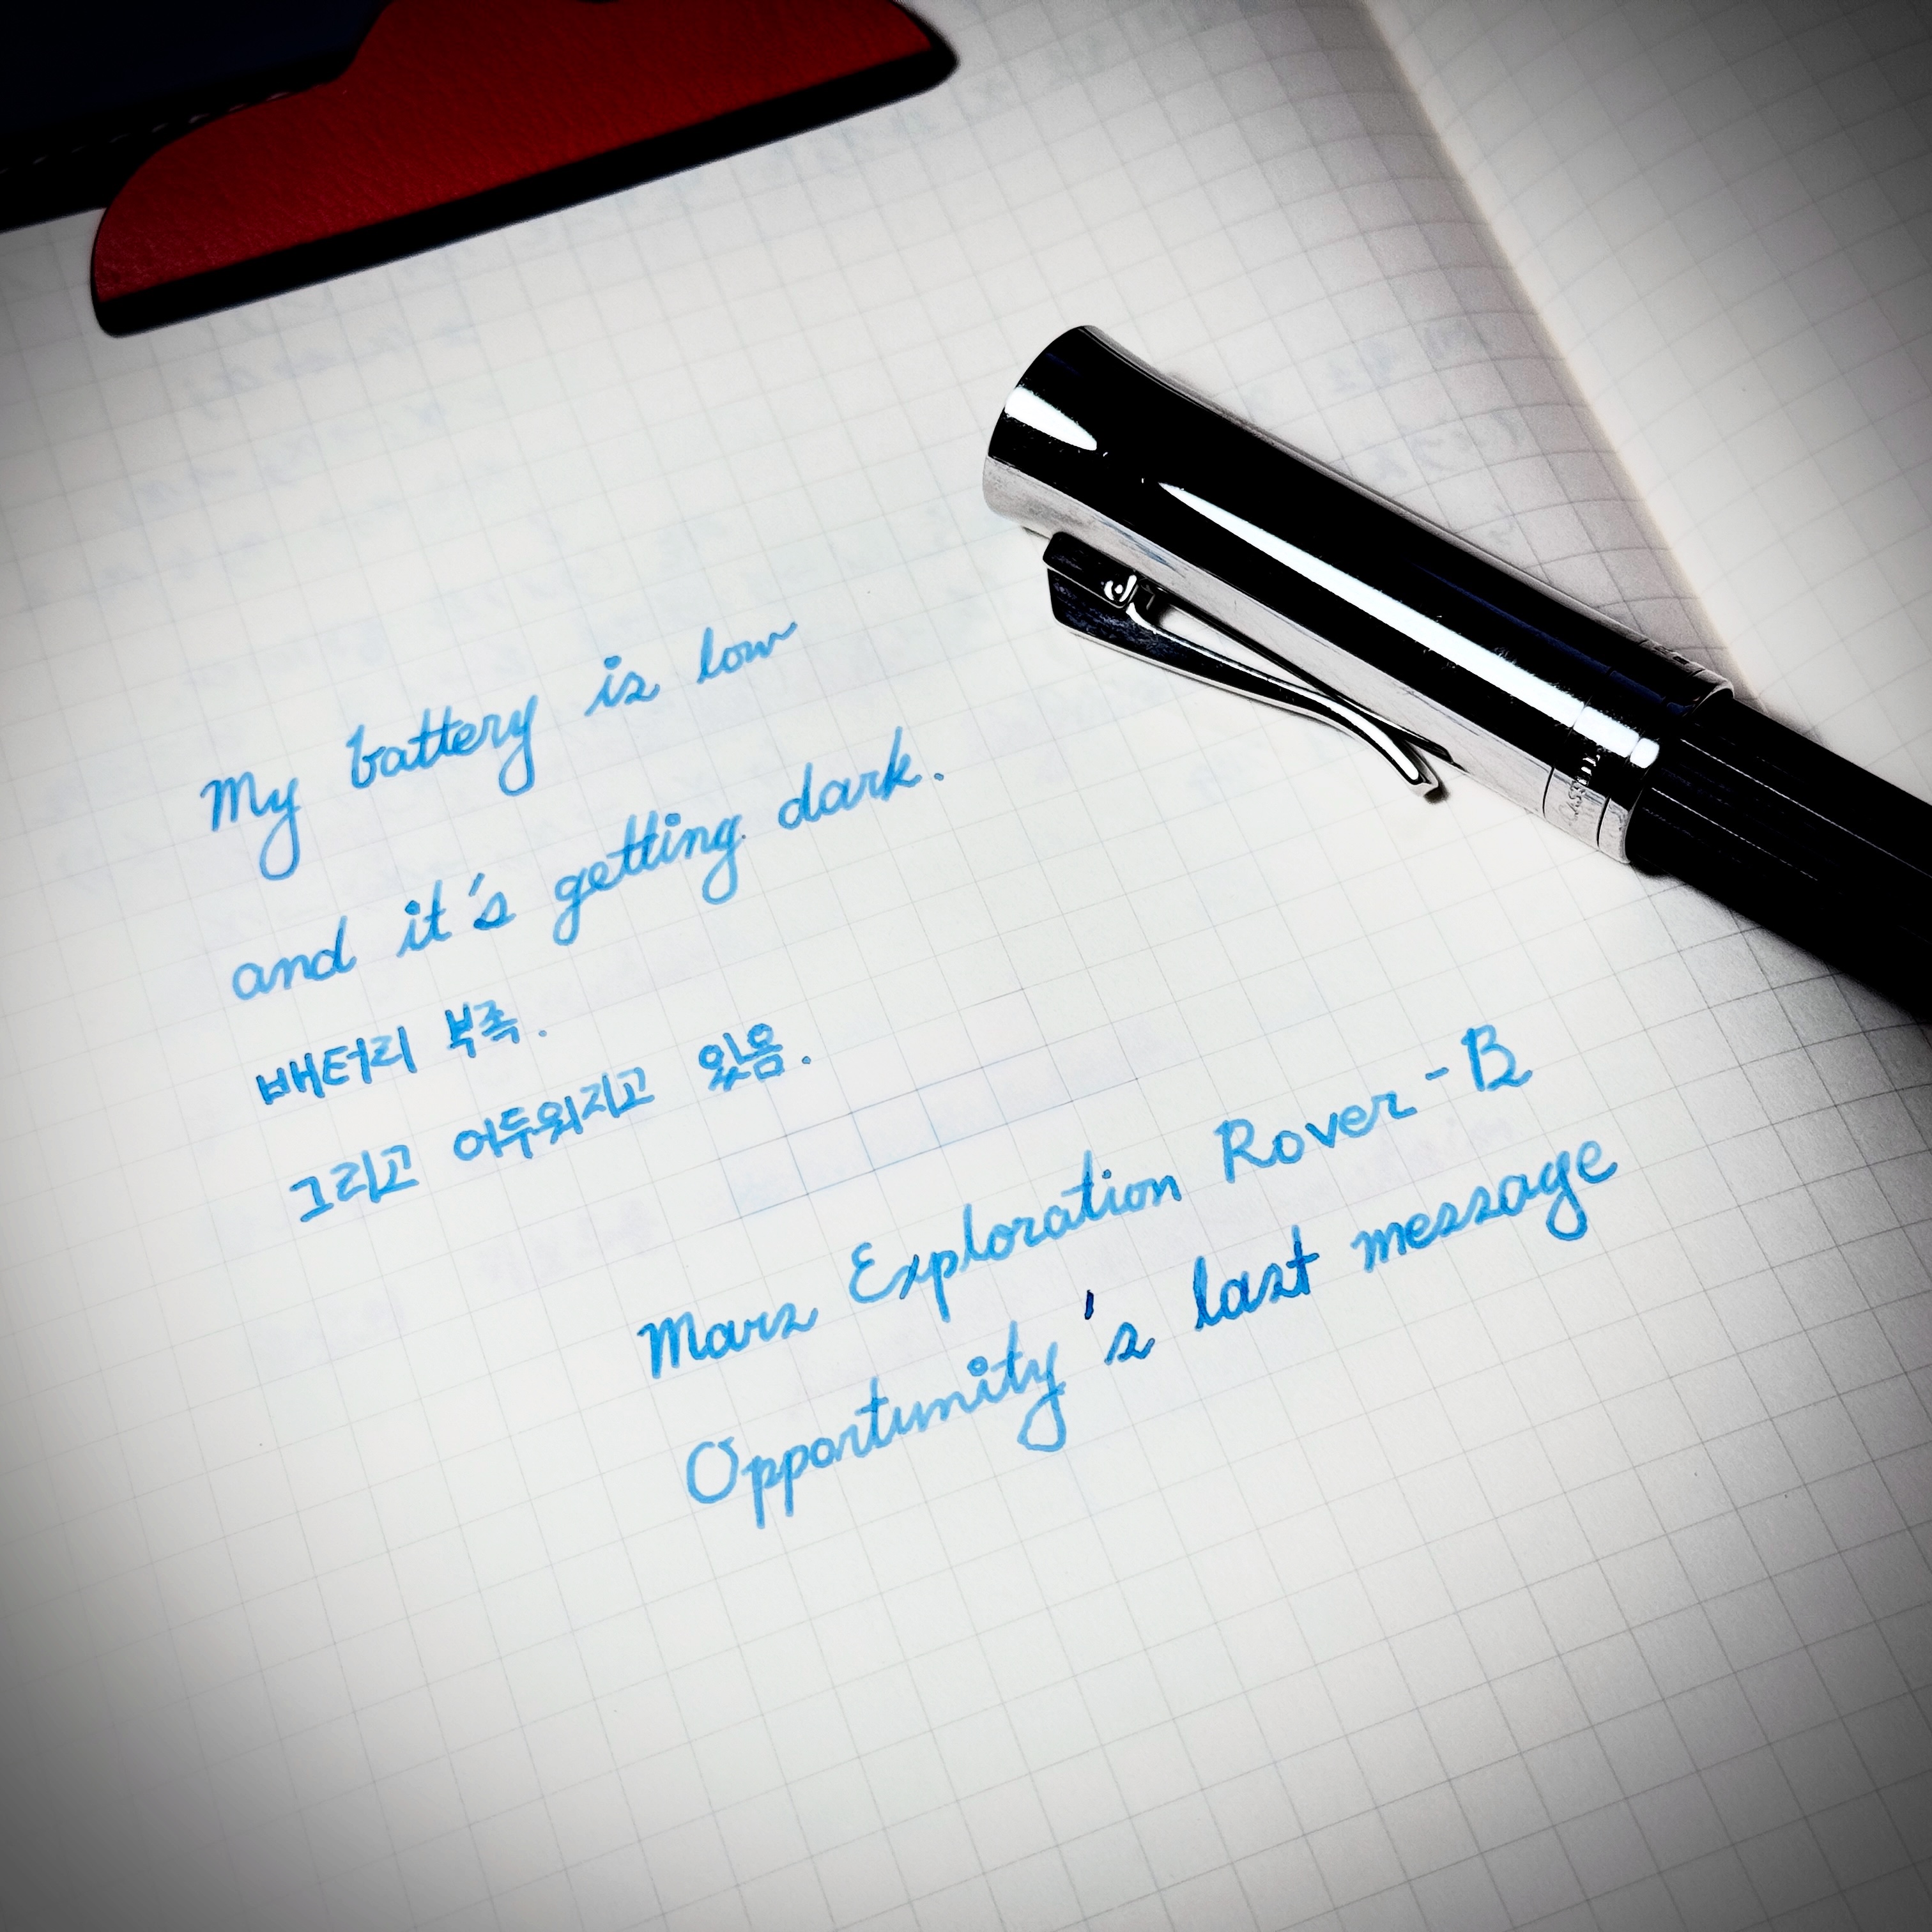 My battery is low
and it's getting dark.
배터리 부족.
그리고 어두워지고 있음.
Mars Exploration Rover-B
Opportunity's last message